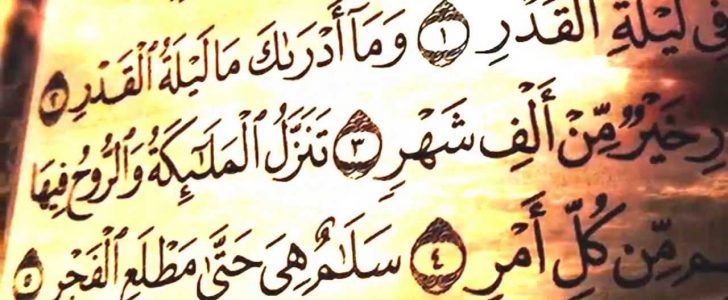 فِى لَيْلَةِ ٱلْقَدْرِ ١ وَمَآ أَدْرَىٰكَ مَا لَيْلَةُ ٱلْقَدْرِ ٢
رِ خَيْرٌ مِّنْ أَلْفِ شَهْرٍ ٣ تَنَزَّلُ ٱلْمَلَٰٓئِكَةُ وَٱلرُّوحُ فِيهَا
م مِّن كُلِّ أَمْرٍ ٤ سَلَٰمٌ هِىَ حَتَّىٰ مَطْلَعِ ٱلْفَجْرِ ٥